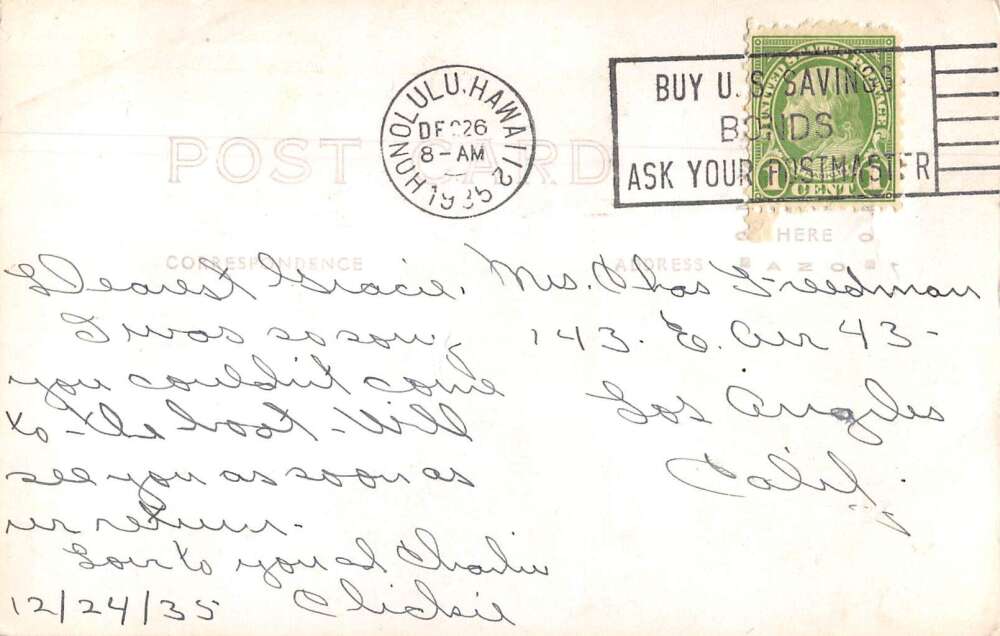 POST CARD
HONOLULU, HAWAII 2
DEC 26
8-AM
1935
BUY U. S. SAVINGS
BONDS
ASK YOUR POSTMASTER
UNITED STATES POSTAGE
1 CENT 1
HERE
CORRESPONDENCE
ADDRESS
AZO
Dearest Gracie,
I was so sorry
you couldn't come
to - the boat - Will
see you as soon as
we return.
Love to you & Charlie
12/24/35
Mrs. Chas Freedman
143. E. Ave 43 -
Los Angeles
Calif.